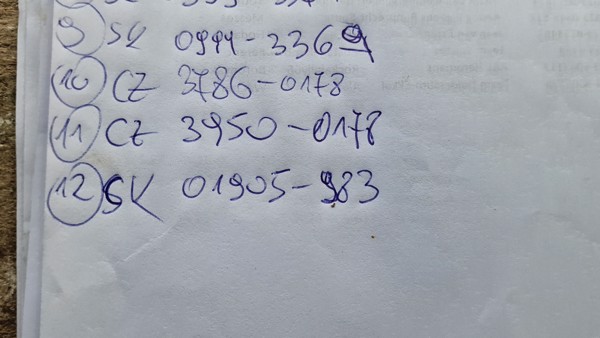 9) SK 0944-3369
10) CZ 3786-0178
11) CZ 3950-0178
12) SK 01905-983